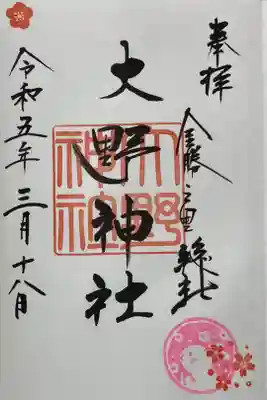 奉拝
金勝之里
大野神社
大野
神社
令和五年三月十八日